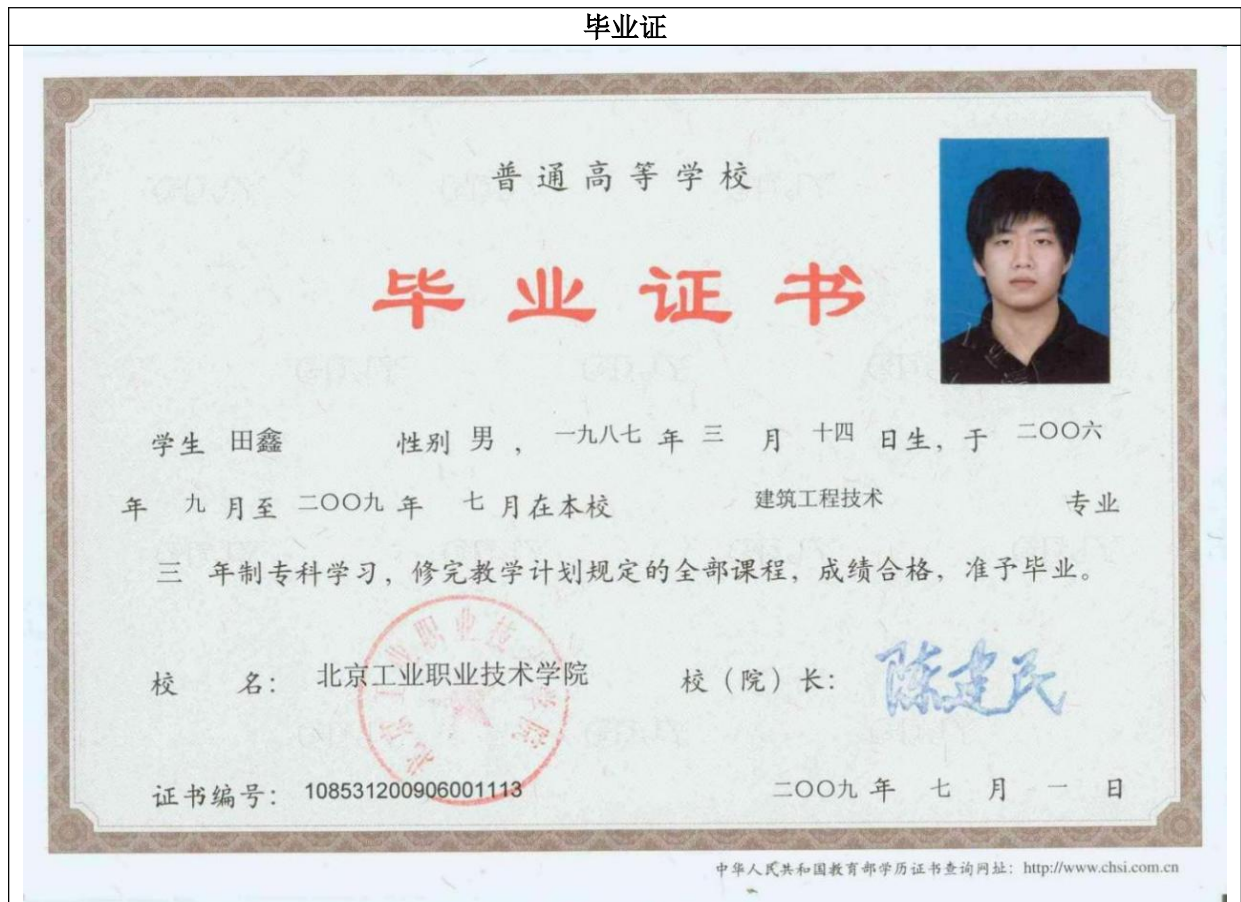 毕业证
普通高等学校
毕业证书
学生 田鑫 性别 男 , 一九八七 年 三 月 十四 日生, 于 二〇〇六
年 九 月至 二〇〇九 年 七 月在本校 建筑工程技术 专业
三 年制专科学习, 修完教学计划规定的全部课程, 成绩合格, 准予毕业。
校 名: 北京工业职业技术学院 校(院)长: 陈建民
北京工业职业技术学院
证书编号: 108531200906001113 二〇〇九 年 七 月 一 日
中华人民共和国教育部学历证书查询网址: http://www.chsi.com.cn